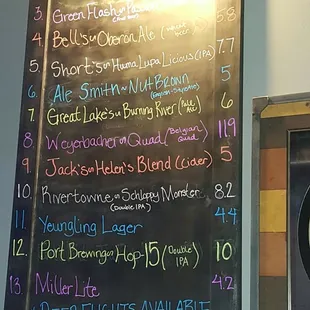 3. Green Flash
4. Bell's Oberon Ale (wheat beer) 5.8
5. Short's Huma Lupa Licious (IPA) 7.7
6. Ale Smith Nut Brown 5
(English Style)
7. Great Lake's Burning River (Pale Ale) 6
8. Weyerbacher Quad (Belgian Quad) 11.9
9. Jack's Helen's Blend (cider) 5
10. Rivertowne Schlappy Monster 8.2
(Double IPA)
11. Yeungling Lager 4.4
12. Port Brewing Hop-15 (Double IPA) 10
13. Miller Lite 4.2
BEER FLIGHTS AVAILABLE